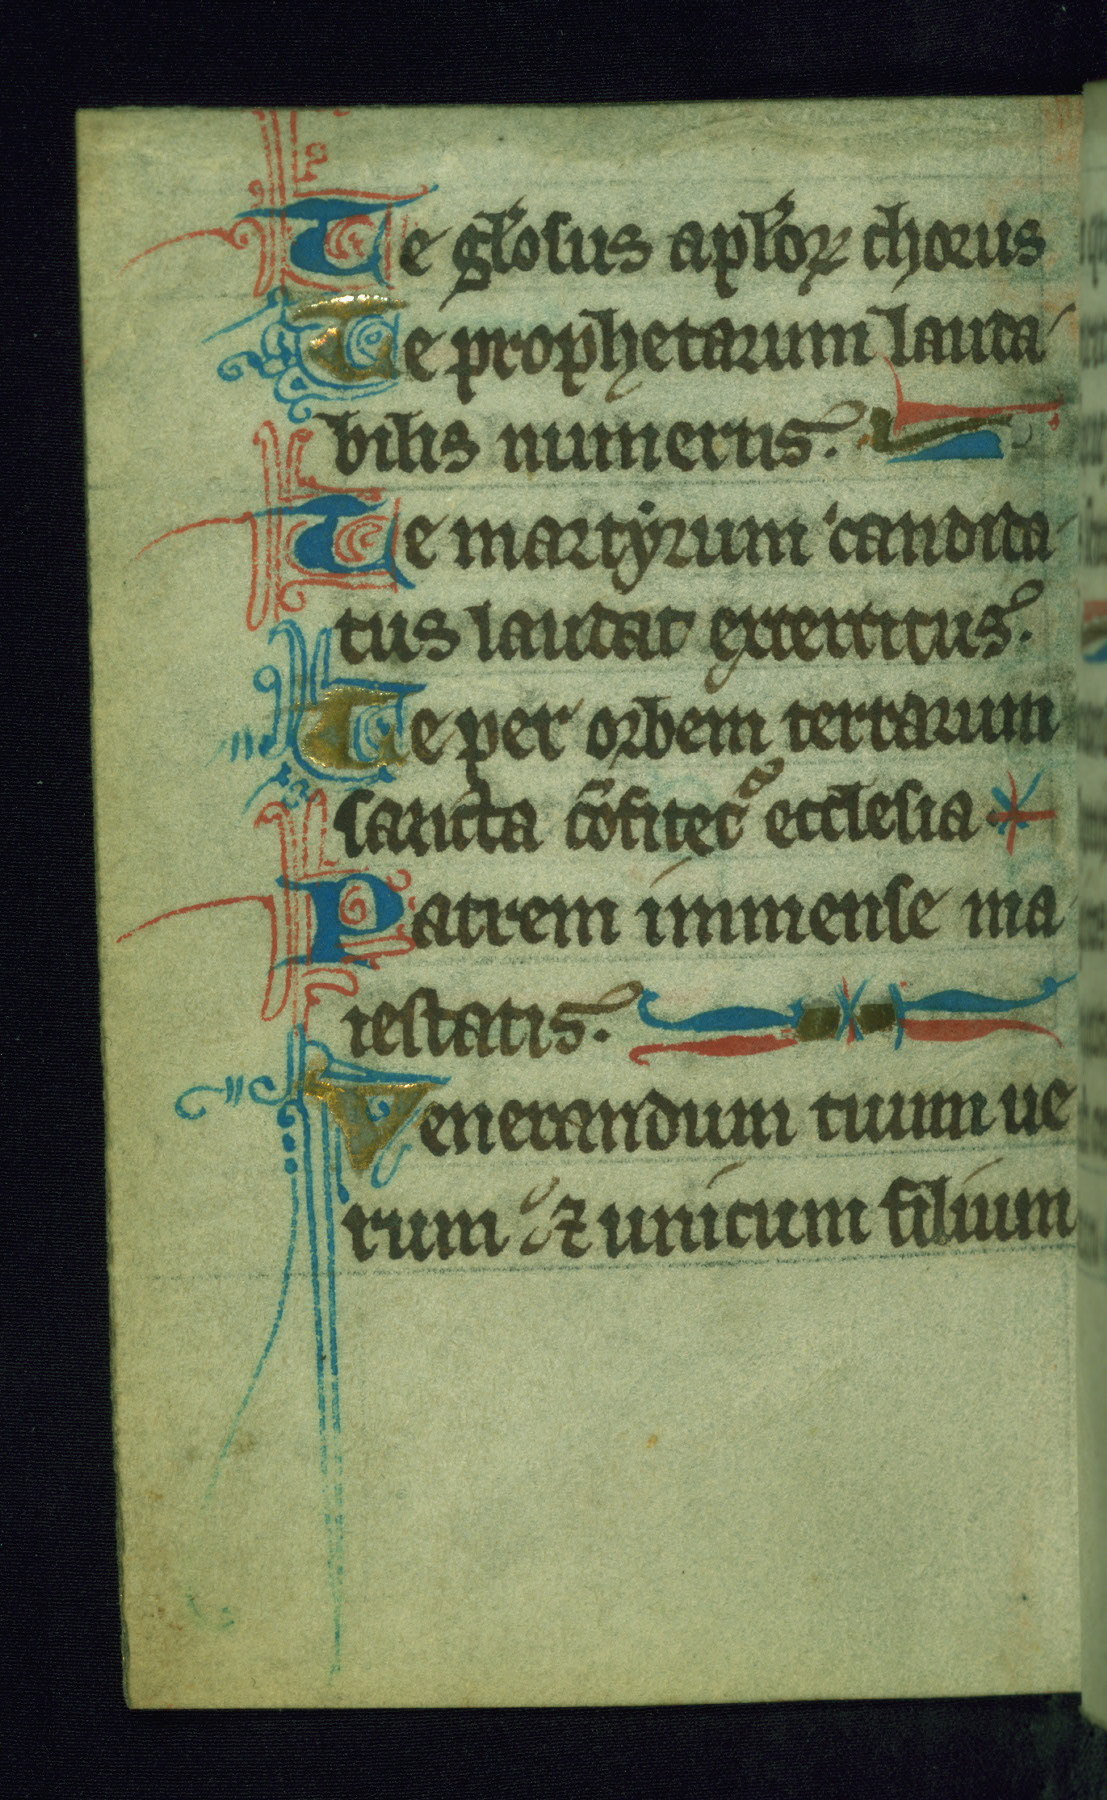 Te gl'osus apl'oꝝ chorus
Te prophetarum lauda
bilis numerus.
Te martyrum candida
tus laudat exercitus.
Te per orbem terrarum
sancta cōfitet᷑ ecclesia
Patrem immense ma
iestatis.
Venerandum tuum ue
rum ⁊ unicum filium